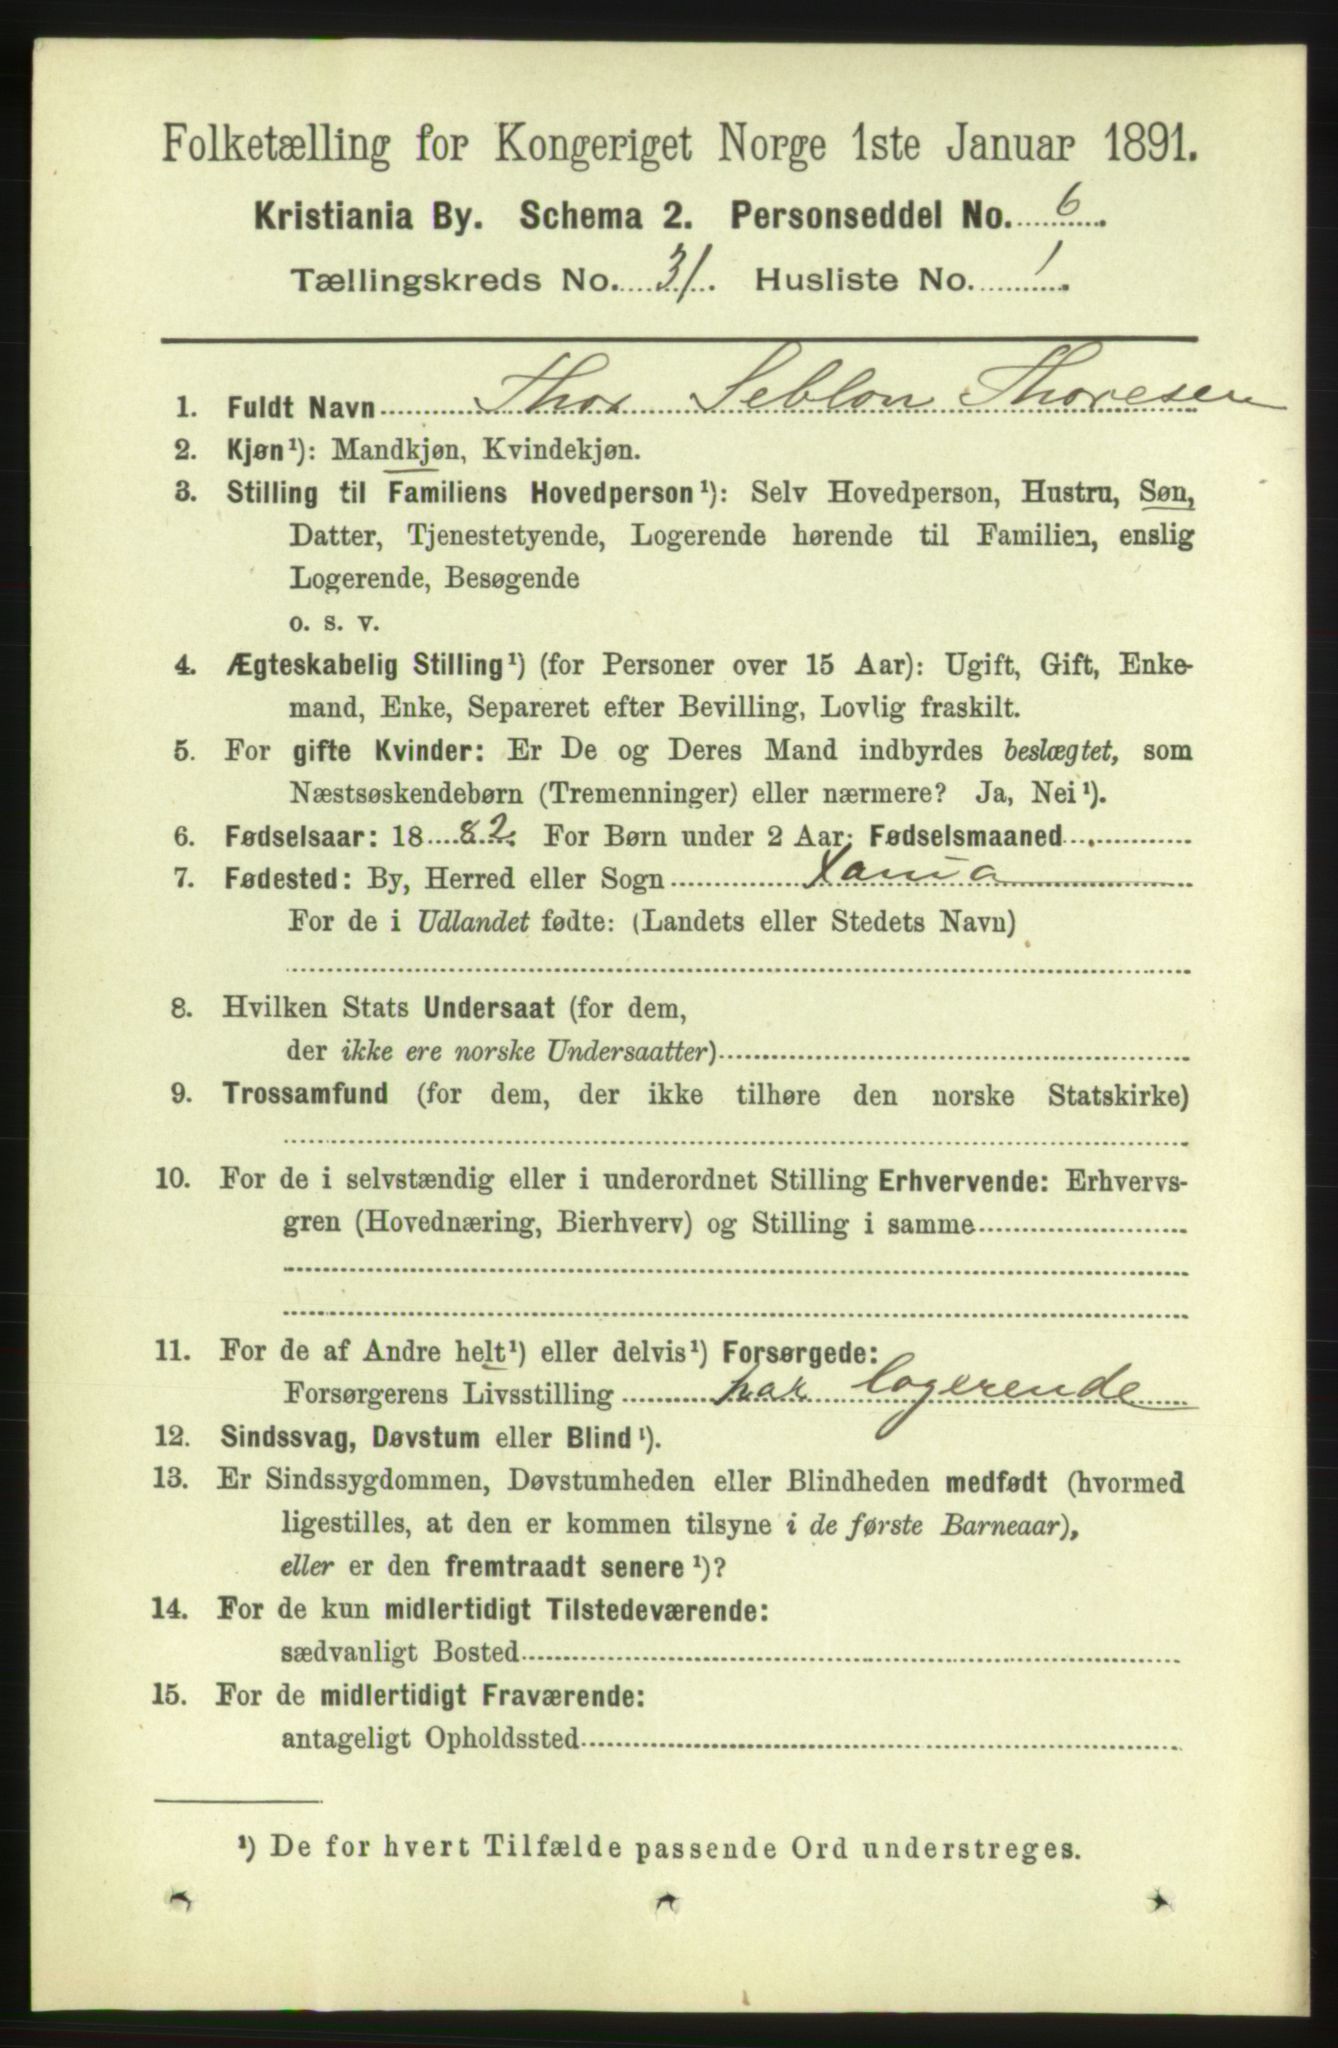 Folketælling for Kongeriget Norge 1ste Januar 1891.
Kristiania By. Schema 2. Personseddel No. 6.
Tællingskreds No. 31. Husliste No. 1.
1. Fuldt Navn Thor Seblon Thoresen
2. Kjøn¹): Mandkjøn, Kvindekjøn.
3. Stilling til Familiens Hovedperson¹): Selv Hovedperson, Hustru, Søn,
Datter, Tjenestetyende, Logerende hørende til Familien, enslig
Logerende, Besøgende
o. s. v.
4. Ægteskabelig Stilling¹) (for Personer over 15 Aar): Ugift, Gift, Enke-
mand, Enke, Separeret efter Bevilling, Lovlig fraskilt.
5. For gifte Kvinder: Er De og Deres Mand indbyrdes beslægtet, som
Næstsøskendebørn (Tremenninger) eller nærmere? Ja, Nei¹).
6. Fødselsaar: 1882. For Børn under 2 Aar: Fødselsmaaned
7. Fødested: By, Herred eller Sogn Xania
For de i Udlandet fødte: (Landets eller Stedets Navn)
8. Hvilken Stats Undersaat (for dem,
der ikke ere norske Undersaatter)
9. Trossamfund (for dem, der ikke tilhøre den norske Statskirke)
10. For de i selvstændig eller i underordnet Stilling Erhvervende: Erhvervs-
gren (Hovednæring, Bierhverv) og Stilling i samme
11. For de af Andre helt¹) eller delvis¹) Forsørgede:
Forsørgerens Livsstilling har logerende
12. Sindssvag, Døvstum eller Blind¹).
13. Er Sindssygdommen, Døvstumheden eller Blindheden medfødt (hvormed
ligestilles, at den er kommen tilsyne i de første Barneaar),
eller er den fremtraadt senere¹)?
14. For de kun midlertidigt Tilstedeværende:
sædvanligt Bosted
15. For de midlertidigt Fraværende:
antageligt Opholdssted
¹) De for hvert Tilfælde passende Ord understreges.